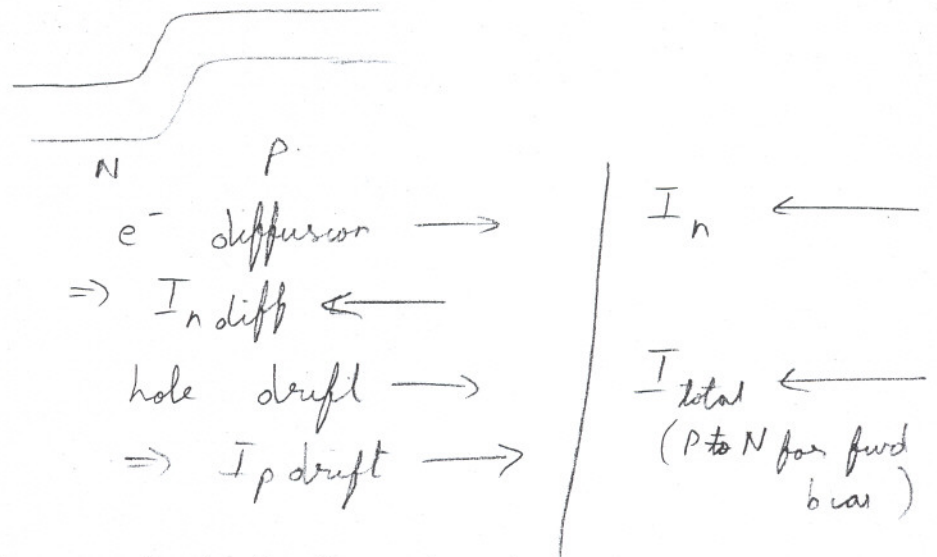 N P
e⁻ diffusion →
⇒ I_n diff ←
hole drift →
⇒ I_p drift →
I_n ←
I_total ←
(P to N for fwd
bias)